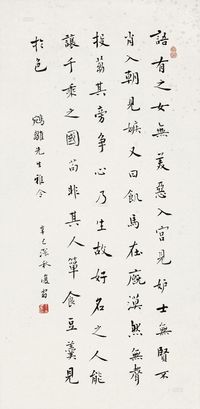 語有之女無美惡入宮見妒士無賢不
肖入朝見嫉又曰飢馬在廄漠然無聲
投芻其旁爭心乃生故好名之人能
讓千乘之國苟非其人簞食豆羹見
於色
鵷雛先生雅令
辛巳深秋